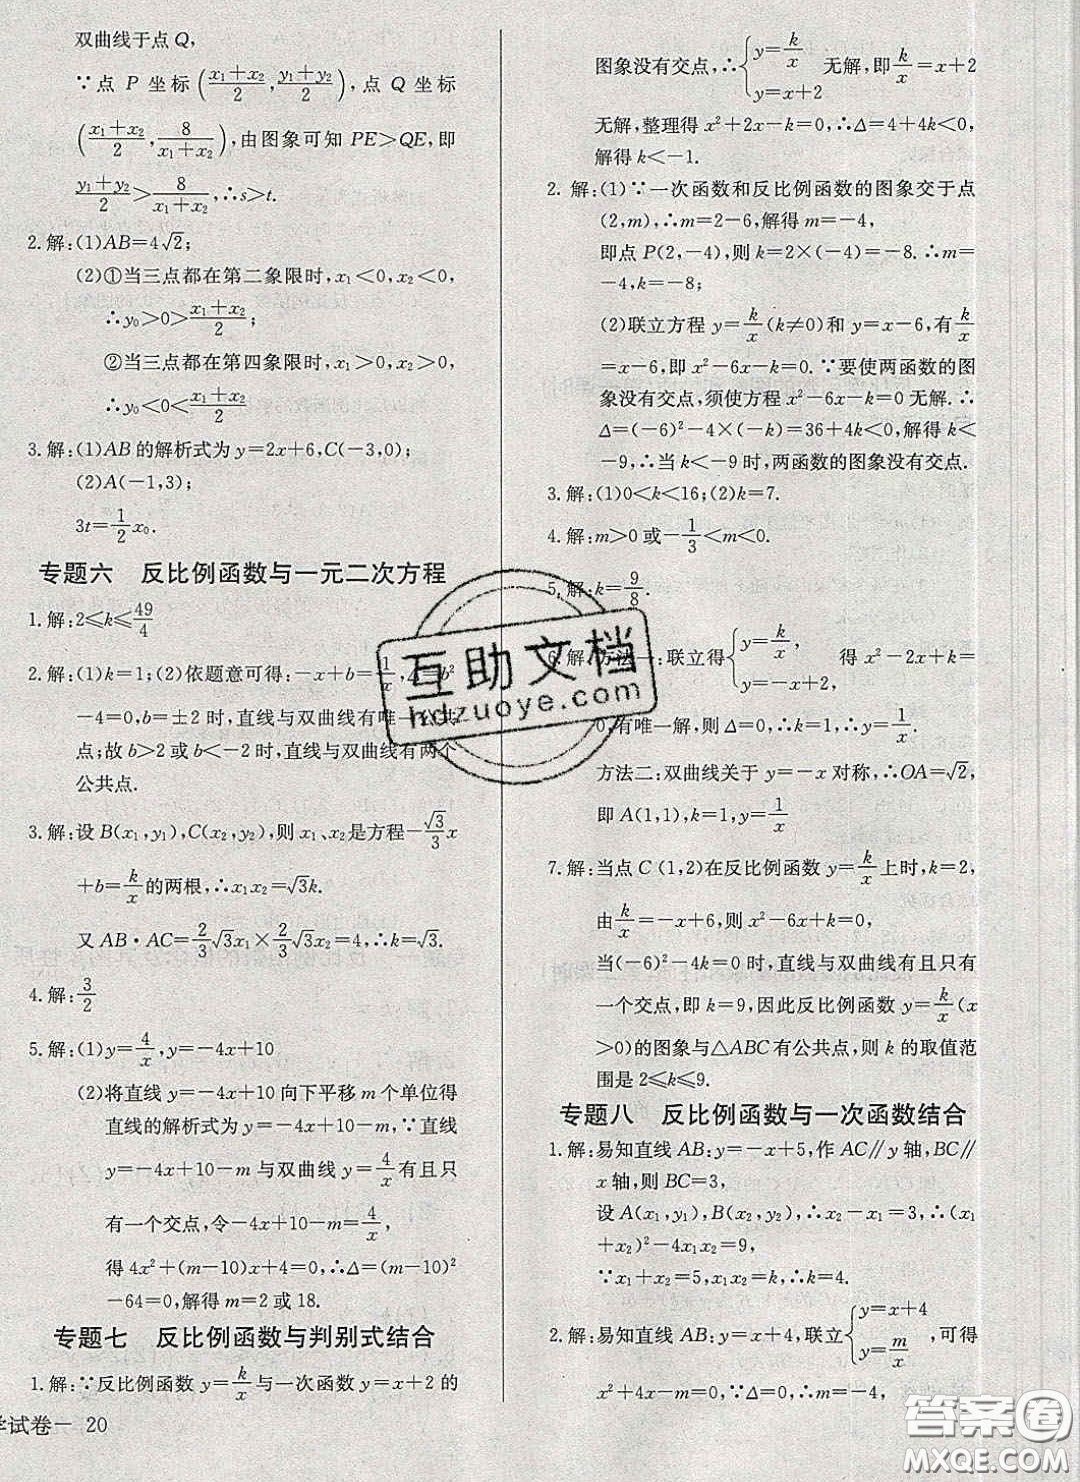 双曲线于点Q,
∵点 P 坐标 ((x₁+x₂)/2, (y₁+y₂)/2), 点 Q 坐标
((x₁+x₂)/2, 8/(x₁+x₂)), 由图象可知 PE>QE, 即
(y₁+y₂)/2>8/(x₁+x₂), ∴s>t.
2.解:(1)AB=4√2;
(2)①当三点都在第二象限时,x₁<0,x₂<0,
∴y₀>0>(x₁+x₂)/2;
②当三点都在第四象限时,x₁>0,x₂>0,
∴y₀<0<(x₁+x₂)/2.
3.解:(1)AB的解析式为y=2x+6,C(-3,0);
(2)A(-1,3);
3t=1/2 x₀.
专题六 反比例函数与一元二次方程
1.解:2≤k≤49/4
2.解:(1)k=1;(2)依题意可得:-x+b=1/x,Δ=b²
-4=0,b=±2时,直线与双曲线有唯一公共
点;故b>2或b<-2时,直线与双曲线有两个
公共点.
3.解:设B(x₁,y₁),C(x₂,y₂),则x₁、x₂是方程-√3/3 x
+b=k/x的两根,∴x₁x₂=√3k.
又AB·AC=2/3√3x₁×2/3√3x₂=4,∴k=√3.
4.解:3/2
5.解:(1)y=4/x,y=-4x+10
(2)将直线y=-4x+10向下平移m个单位得
直线的解析式为y=-4x+10-m,
∵直线y=-4x+10-m与双曲线y=4/x有且只
有一个交点,令-4x+10-m=4/x,
得4x²+(m-10)x+4=0,∴Δ=(m-10)²
-64=0,解得m=2或18.
专题七 反比例函数与判别式结合
1.解:∵反比例函数y=k/x与一次函数y=x+2的
学试卷— 20
图象没有交点,∴{y=k/x y=x+2 无解,即k/x=x+2
无解,整理得x²+2x-k=0,∴Δ=4+4k<0,
解得k<-1.
2.解:(1)∵一次函数和反比例函数的图象交于点
(2,m),∴m=2-6,解得m=-4,
即点P(2,-4),则k=2×(-4)=-8.∴m=
-4,k=-8;
(2)联立方程y=k/x(k≠0)和y=x-6,有k/x
=x-6,即x²-6x-k=0.∵要使两函数的图
象没有交点,须使方程x²-6x-k=0无解.∴
Δ=(-6)²-4×(-k)=36+4k<0,解得k<
-9,∴当k<-9时,两函数的图象没有交点.
3.解:(1)0<k<16;(2)k=7.
4.解:m>0或-1/3<m<0.
5.解:k=9/8.
6.解:方法一:联立得{y=k/x, y=-x+2, 得x²-2x+k=
0,有唯一解,则Δ=0,∴k=1,∴y=1/x.
方法二:双曲线关于y=-x对称,∴OA=√2,
即A(1,1),y=1/x
7.解:当点C(1,2)在反比例函数y=k/x上时,k=2,
由k/x=-x+6,则x²-6x+k=0,
当(-6)²-4k=0时,直线与双曲线有且只有
一个交点,即k=9,因此反比例函数y=k/x(x
>0)的图象与△ABC有公共点,则k的取值范
围是2≤k≤9.
专题八 反比例函数与一次函数结合
1.解:易知直线AB:y=-x+5,作AC∥y轴,BC∥
x轴,则BC=3,
设A(x₁,y₁),B(x₂,y₂),∴x₂-x₁=3,∴(x₁
+x₂)²-4x₁x₂=9,
∵x₁+x₂=5,x₁x₂=k,∴k=4.
2.解:易知直线AB:y=x+4,联立{y=x+4 y=m/x ,可得
x²+4x-m=0,∴x₁+x₂=-4,x₁x₂=-m,
互助文档
hdzuoye.com
答案圈
MXQE.COM